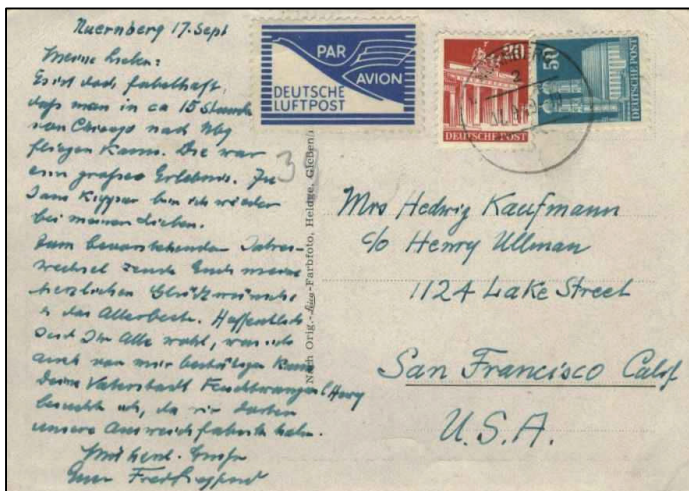 Nuernberg 17. Sept
Meine Lieben:
Es ist doch fabelhaft,
dass man in ca 15 Stunden
von Chicago nach Nbg
fliegen kann. Die war
ein grosses Erlebnis. Zu
Jom Kippur bin ich wieder
bei meinen Lieben.
Zum bevorstehenden Jahres-
wechsel sende Euch meine
herzlichen Glückwünsche
u das Allerbeste. Hoffentlich
seid Ihr Alle wohl, was ich
auch von mir bestätigen kann
Deine Vaterstadt Feuchtwangen l/ Harry
besuchte ich, da wir dorten
unsere Ausweichfabrik haben.
herzl. Grüsse
Euer Fred
PAR
AVION
DEUTSCHE
LUFTPOST
20
DEUTSCHE POST
50
DEUTSCHE POST
39
Nach Orig.-Farbfoto, Heldge,
Mrs Hedwig Kaufmann
c/o Henry Ullman
1124 Lake Street
San Francisco Calif
U.S.A.